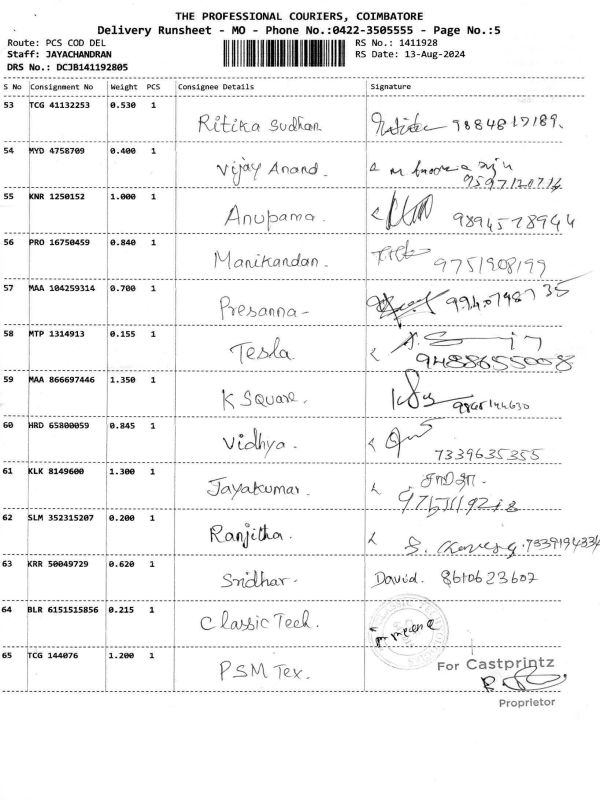 THE PROFESSIONAL COURIERS, COIMBATORE
Delivery Runsheet - MO - Phone No.:0422-3505555 - Page No.:5
Route: PCS COD DEL RS No.: 1411928
Staff: JAYACHANDRAN RS Date: 13-Aug-2024
DRS No.: DCJB141192805
S No Consignment No Weight PCS Consignee Details Signature
53 TCG 41132253 0.530 1 Ritika Sudhan 9884817189.
54 MYD 4758709 0.400 1 Vijay Anand.
55 KNR 1250152 1.000 1 Anupama. 9894578944
56 PRO 16750459 0.840 1 Manikandan. 9751908199
57 MAA 104259314 0.700 1 Presanna-
58 MTP 1314913 0.155 1 Tesla
9488655008
59 MAA 866697446 1.350 1 K Square.
60 HRD 65800059 0.845 1 Vidhya.
7339635355
61 KLK 8149600 1.300 1 Jayakumar.
62 SLM 352315207 0.200 1 Ranjitha. 7339194334
63 KRR 50049729 0.620 1 Sridhar. David. 8610623607
64 BLR 6151515856 0.215 1 Classic Tech.
65 TCG 144076 1.200 1 PSM Tex. For Castprintz
Proprietor